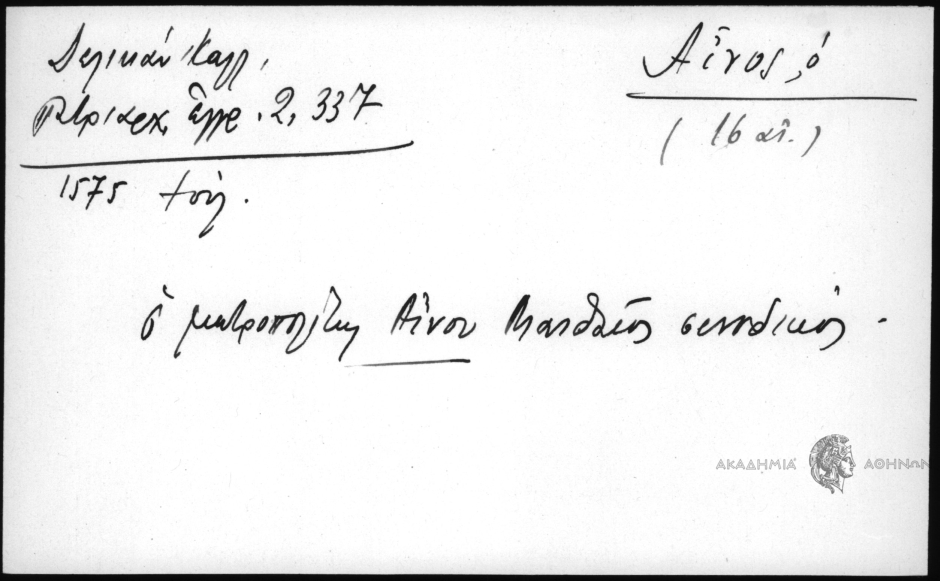 Δελικάν, Καλλ,
Πατριαρχ. Έγγρ. 2, 337
1575
Αἶνος, ὁ
(16 αἰ.)
ὁ μητροπολίτης Αἴνου Ματθαῖος συνοδικός.
ΑΚΑΔΗΜΙΑ ΑΘΗΝΩΝ